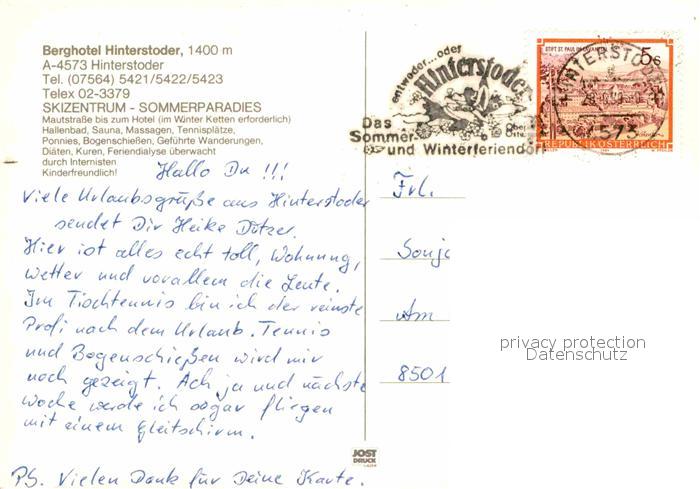 Berghotel Hinterstoder, 1400 m
A-4573 Hinterstoder
Tel. (07564) 5421/5422/5423
Telex 02-3379
SKIZENTRUM - SOMMERPARADIES
Mautstraße bis zum Hotel (im Winter Ketten erforderlich)
Hallenbad, Sauna, Massagen, Tennisplätze,
Ponnies, Bogenschießen, Geführte Wanderungen,
Diäten, Kuren, Feriendialyse überwacht
durch Internisten
Kinderfreundlich!
Hallo Du !!!
Viele Urlaubsgrüße aus Hinterstoder
sendet Dir Heike
Hier ist alles echt toll, Wohnung,
Wetter und vorallem die Leute.
Im Tischtennis bin ich der reinste
Profi nach dem Urlaub. Tennis
und Bogenschießen wird mir
noch gezeigt. Ach ja und nächste
Woche werde ich sogar fliegen
mit einem Gleitschirm.
PS. Vielen Dank für Deine Karte.
JOST
DRUCK
entweder...oder
Hinterstoder
Das
Sommer-
und Winterferiendorf
STIFT ST. PAUL IM LAVANTTAL
5s
REPUBLIK ÖSTERREICH
HINTERSTODER
4573
Frl.
Sonja
Am
8501
privacy protection
Datenschutz